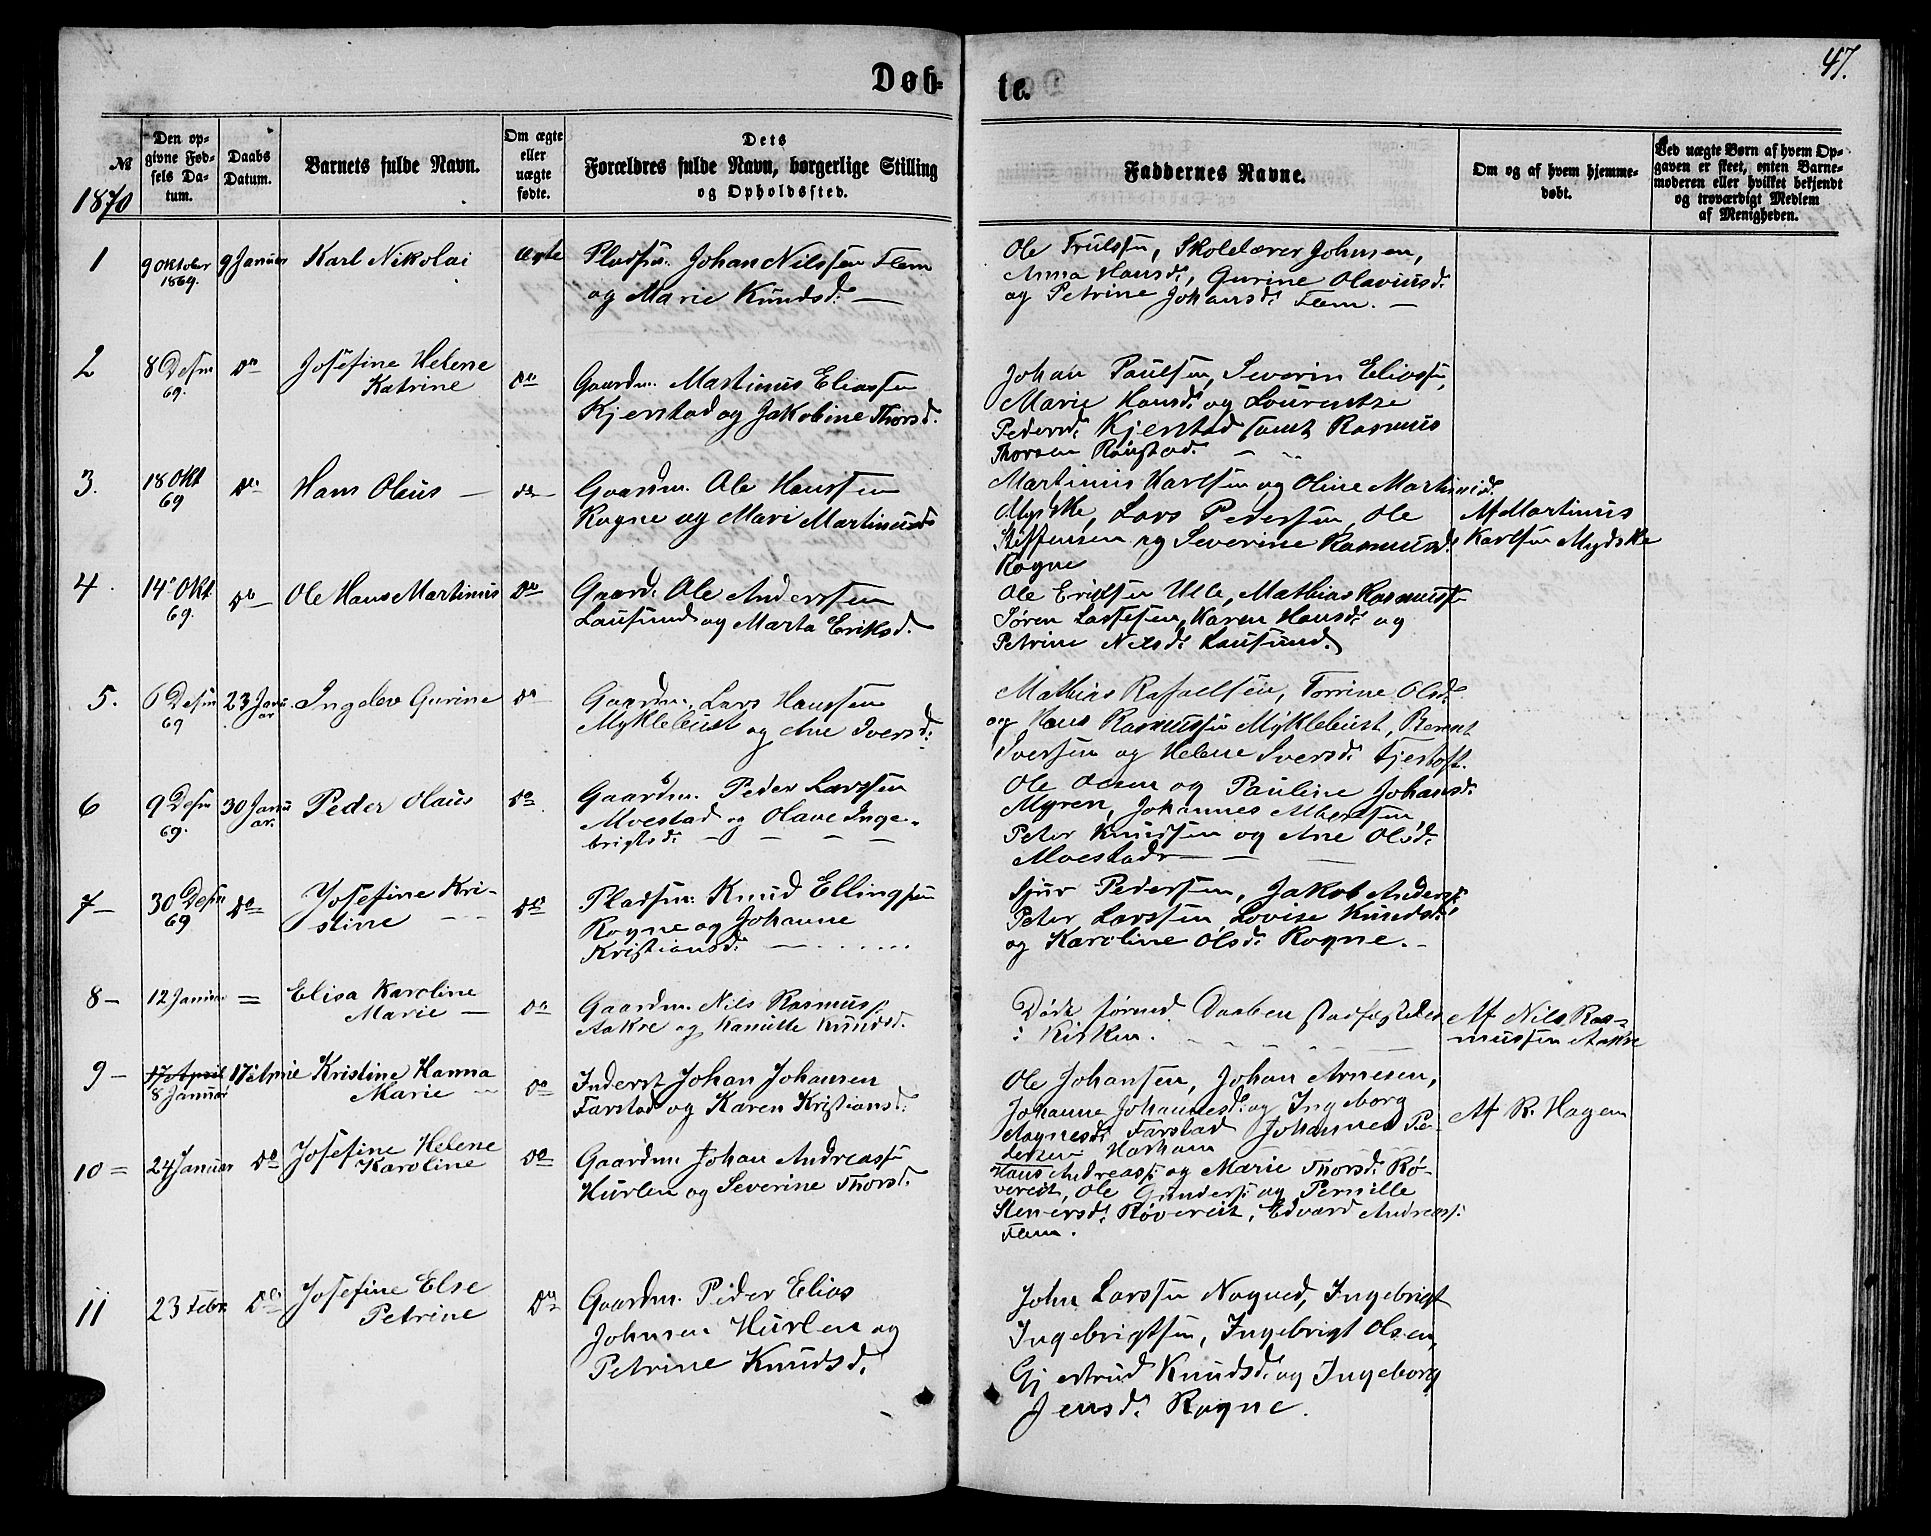 47.
Døb-
te.
№
Den op-
givne Fød-
sels Da-
tum.
Daabs
Datum.
Barnets fulde Navn.
Om ægte
eller
uægte
fødte.
Dets
Forældres fulde Navn, borgerlige Stilling
og Opholdssted.
Faddernes Navne.
Om og af hvem hjemme-
døbt.
Ved uægte Børn af hvem Op-
gaven er skeet, enten Barne-
moderen eller hvilket bekjendt
og troværdigt Medlem
af Menigheden.
1870
1
9 Oktober
1869.
9 Januar
Karl Nikolai
Ægte
Pladsm. Johan Nilssen Flem
og Marie Knudsd. —
Ole Trulssen, Skolelærer Johnsen,
Anna Hansd., Gurine Olaviusd.
og Petrine Johansd. Flem. —
2
8 Desm
69.
Do
Josefine Helene
Katrine
Do
Gaardm. Martinus Eliassen
Kjerstad og Jakobine Thorsd.
Johan Paulsen, Severin Eliassen,
Marie Hansd. og Lourentze
Pedersd. Kjerstad samt Rasmus
Thorsen Ronstad.
3.
18 Okt
69
Do
Hans Olaus —
Do
Gaardm. Ole Hanssen
Rogne og Mari Martinusd
Martinus Karlsen og Oline Martinusd.
Mydske, Lars Pedersen, Ole
Steffensen og Severine Rasmusd.
Rogne
Af Martinus
Karlsen Mydske
4.
14 Okt
69.
Do
Ole Hans Martinus
Do
Gaardm. Ole Anderssen
Lausund og Marta Eriksd.
Ole Eriksen Ulle, Mathias Rasmuss.
Søren Lassesen, Karen Hansd. og
Petrine Nilsd. Lausund.
5.
6 Desm
69
23 Janu
ar.
Ingelev Gurine
Do
Gaardm. Lars Hanssen
Myklebust og Ane Iversd.
Mathias Rafaelsen, Torrine Olsd.
og Hans Rasmussen Myklebust, Bernt
Iversen og Helene Iversd. Fjertoft.
6
9 Desm
69.
30 Janu
ar.
Peder Olaus
Do
Gaardm. Peder Larssen
Moestad og Olave Inge-
brigtsd. — — —
Ole Olsen og Pauline Johansd.
Myren, Johannes Albertsen,
Peter Knudsen og Ane Olsd.
Moestad — —
7 —
30 Desm
69
Do
Josefine Kri-
stine
Do
Pladsm. Knud Ellingsen
Rogne og Johanne
Kristiansd.
Sjur Pedersen, Jakob Anders.
Peter Larssen, Lovise Knudsd.
og Karoline Olsd. Rogne. —
8 —
12 Januar
=
Elisa Karoline
Marie —
Do
Gaardm. Nils Rasmuss.
Aakre og Kamille Knudsd.
Døde førend Daaben stadfæstedes
i Kirken.
Af Nils Ras-
mussen Aakre
9 —
17 April
8 Januar
17 April
Kristine Hanna
Marie
Do
Inderst Johan Johansen
Farstad og Karen Kristiansd.
Ole Johansen, Johan Arnesen,
Johanne Johannesd. og Ingeborg
Aagnesd. Farstad Johannes Pe-
dersen Harham
Af R. Hagen
10 =
24 Januar
Do
Josefine Helene
Karoline
Do
Gaardm. Johan Andreass.
Hurlen og Severine Thorsd.
Hans Andreass. og Marie Thorsd. Rø-
vereit, Ole Gunders. og Pernille
Stenersd. Røvereit, Edvard Andreass.
Flem.
11
23 Febr.
Do
Josefine Else
Petrine
Do
Gaardm. Peder Elias
Johnsen Hurlen og
Petrine Knudsd.
John Larssen Nogved, Ingebrigt
Ingebrigtsen, Ingebrigt Olsen,
Gjertrud Knudsd. og Ingeborg
Jensd. Rogne.